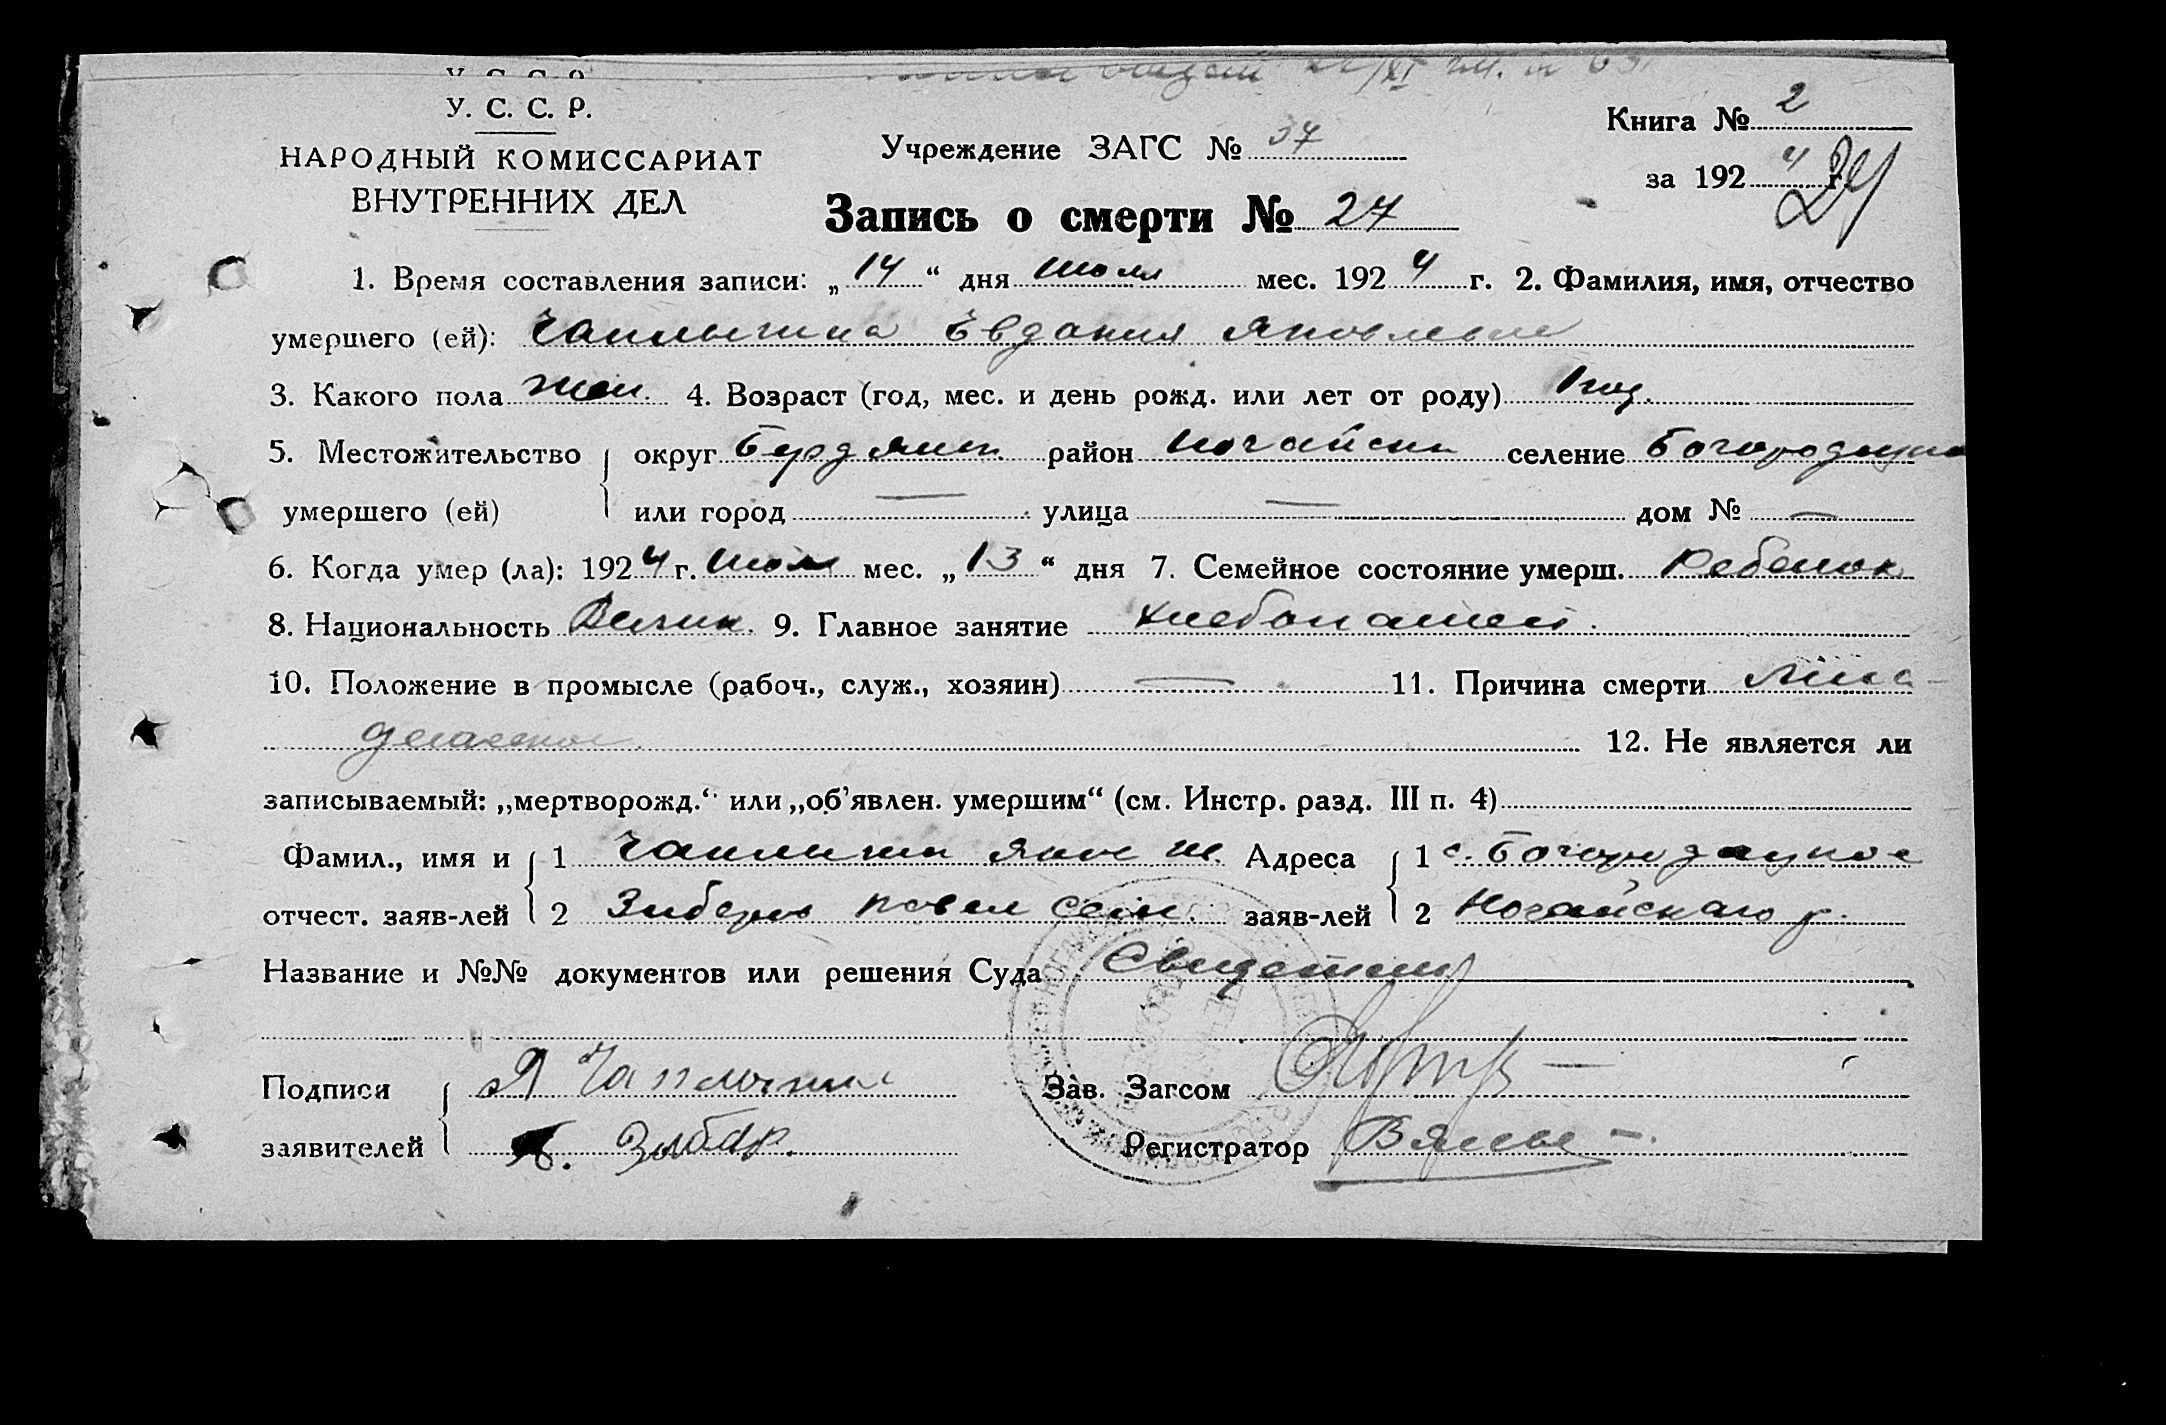 У. С. С. Р.
НАРОДНЫЙ КОМИССАРИАТ
ВНУТРЕННИХ ДЕЛ
Учреждение ЗАГС № 37
Книга № 2
за 1924 г.
Запись о смерти № 27
24
1. Время составления записи: „14“ дня Июля мес. 1924 г. 2. Фамилия, имя, отчество
умершего (ей): Чаплыгина Евдокия Яковлевна
3. Какого пола жен. 4. Возраст (год, мес. и день рожд. или лет от роду) 1 год.
5. Местожительство округ Бердянск район Ногайск селение Богородицкое
умершего (ей) или город — улица — дом № —
6. Когда умер (ла): 1924 г. Июля мес. „13“ дня 7. Семейное состояние умерш. Ребенок
8. Национальность Велик. 9. Главное занятие хлебопашец.
10. Положение в промысле (рабоч., служ., хозяин) — 11. Причина смерти
12. Не является ли
записываемый: „мертворожд.“ или „об’явлен. умершим“ (см. Инстр. разд. III п. 4)
Фамил., имя и 1 Чаплыгин Яков Адреса 1 с. Богородицкое
отчест. заяв-лей 2 Павел Сем. заяв-лей 2 Ногайскаго р.
Название и №№ документов или решения Суда Свидетели
Подписи Я Чаплыгин Зав. Загсом
заявителей Регистратор